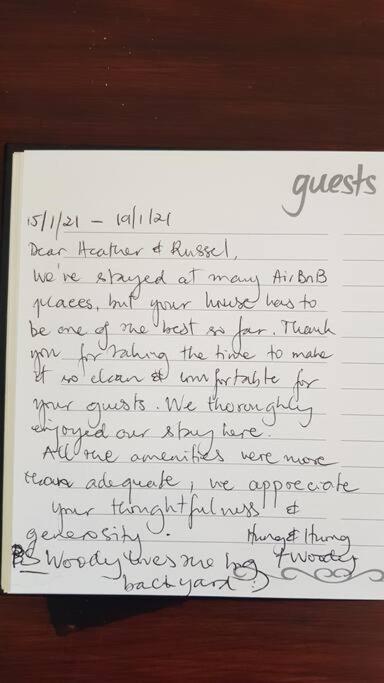 guests
15/1/21 - 19/1/21
Dear Heather & Russel,
We've stayed at many AirBnB
places, but your house has to
be one of the best so far. Thank
you for taking the time to make
it so clean & comfortable for
your guests. We thoroughly
enjoyed our stay here.
All the amenities were more
than adequate, we appreciate
your thoughtfulness &
generosity.
Hung & Hung
+ Woody
PS Woody loves the big
backyard :)